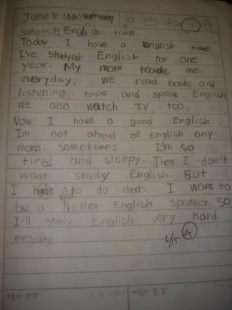 June 11 (4th) Wednesday
Subject: English time
Today I have a English time
I've studied English for one
year. My mom teachs me
everyday. we read books and
listening tape and speak English
we also watch TV, too.
Now I have a good English
I'm not afraid of English any
more. sometimes I'm so
tired and sleepy. Then I don't
want study English. But
I have to do that. I want to
be a better English speaker. So
I'll study English very hard
everyday.